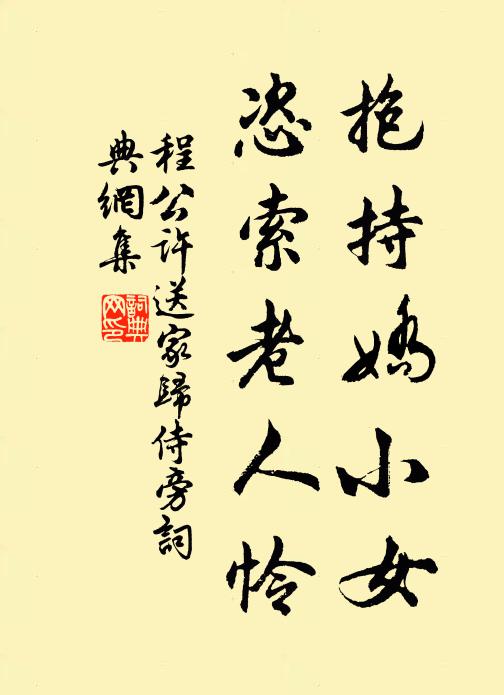 抱持嬌小女
恣索老人怜
程公許送家歸侍旁詞
典網集
詞典网印